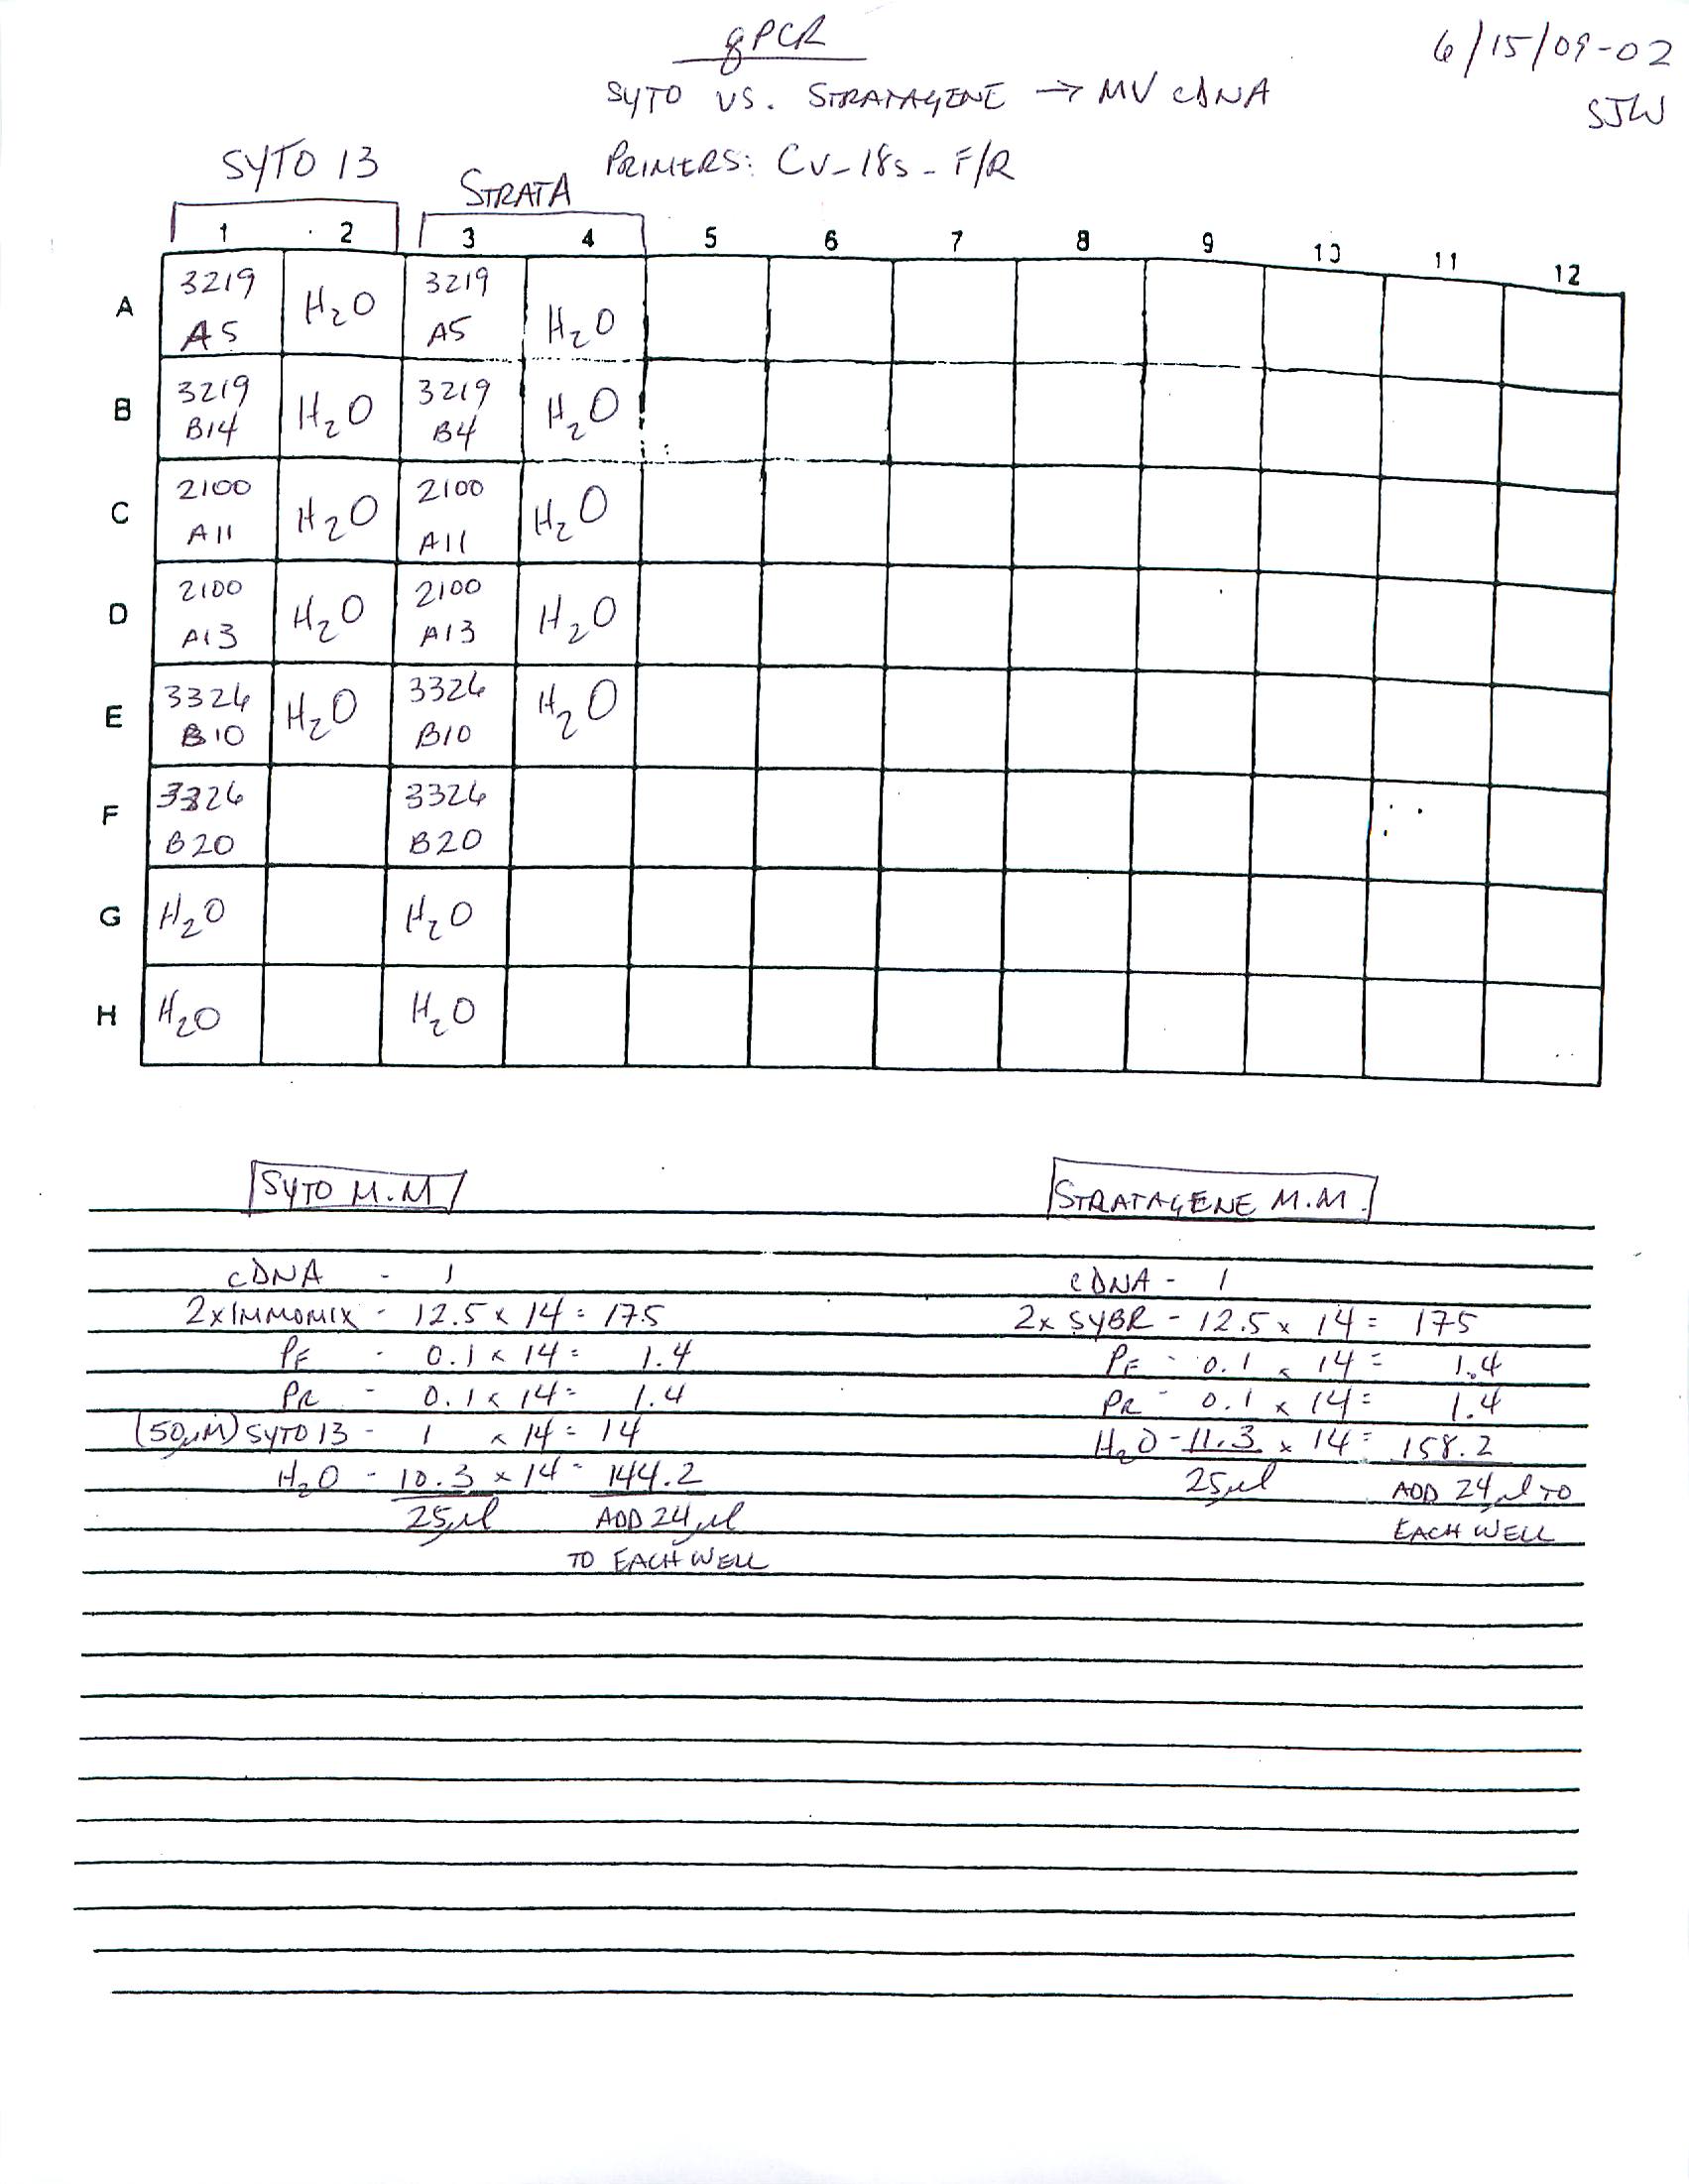 qPCR
6/15/09-02
SYTO VS. STRATAGENE → MV cDNA
SJW
SYTO 13
STRATA
PRIMERS: CV_18s_F/R
1 2 3 4 5 6 7 8 9 10 11 12
A 3219 A5 H2O 3219 A5 H2O
B 3219 B14 H2O 3219 B4 H2O
C 2100 A11 H2O 2100 A11 H2O
D 2100 A13 H2O 2100 A13 H2O
E 3326 B10 H2O 3326 B10 H2O
F 3326 B20 3326 B20
G H2O H2O
H H2O H2O
SYTO M.M
cDNA - 1
2x IMMOMIX - 12.5 x 14 = 175
PF - 0.1 x 14 = 1.4
PR - 0.1 x 14 = 1.4
(50µM) SYTO 13 - 1 x 14 = 14
H2O - 10.3 x 14 = 144.2
25µl ADD 24µl
TO EACH WELL
STRATAGENE M.M.
cDNA - 1
2x SYBR - 12.5 x 14 = 175
PF - 0.1 x 14 = 1.4
PR - 0.1 x 14 = 1.4
H2O - 11.3 x 14 = 158.2
25µl ADD 24µl TO
EACH WELL